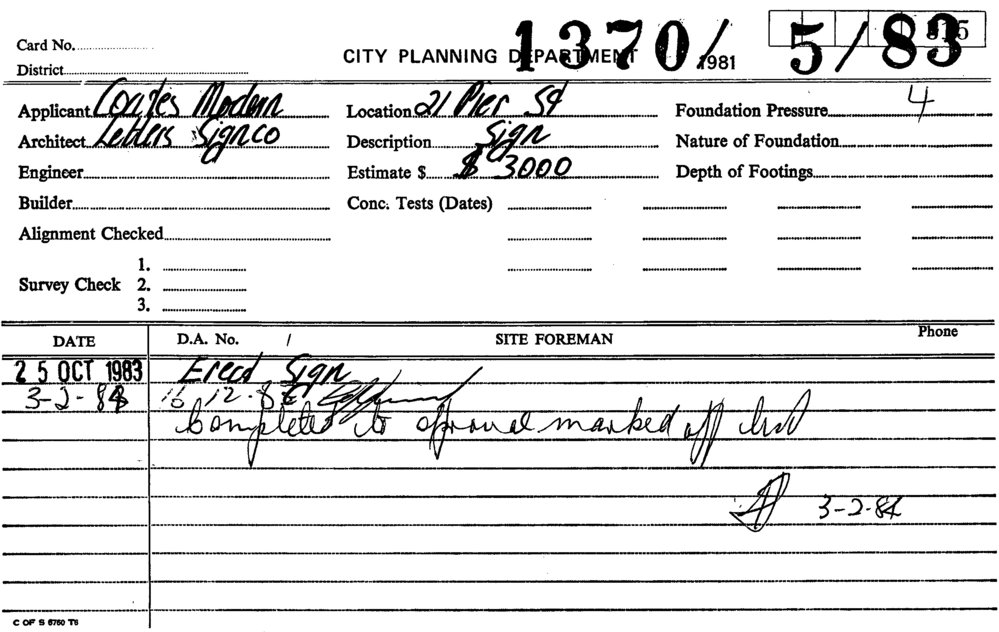 Card No.
District
CITY PLANNING DEPARTMENT 1981
1370/ 5/83
Applicant Coates Modern
Architect Letters Signco
Engineer
Builder
Alignment Checked
Survey Check 1.
2.
3.
Location 21 Pier St
Description Sign
Estimate $ $ 3000
Conc. Tests (Dates)
4
Foundation Pressure
Nature of Foundation
Depth of Footings
DATE D.A. No. / SITE FOREMAN Phone
25 OCT 1983 Erect Sign
3-2-84 16 12-83
Completed to approval marked off list
3-2-84
C OF S 6750 T6